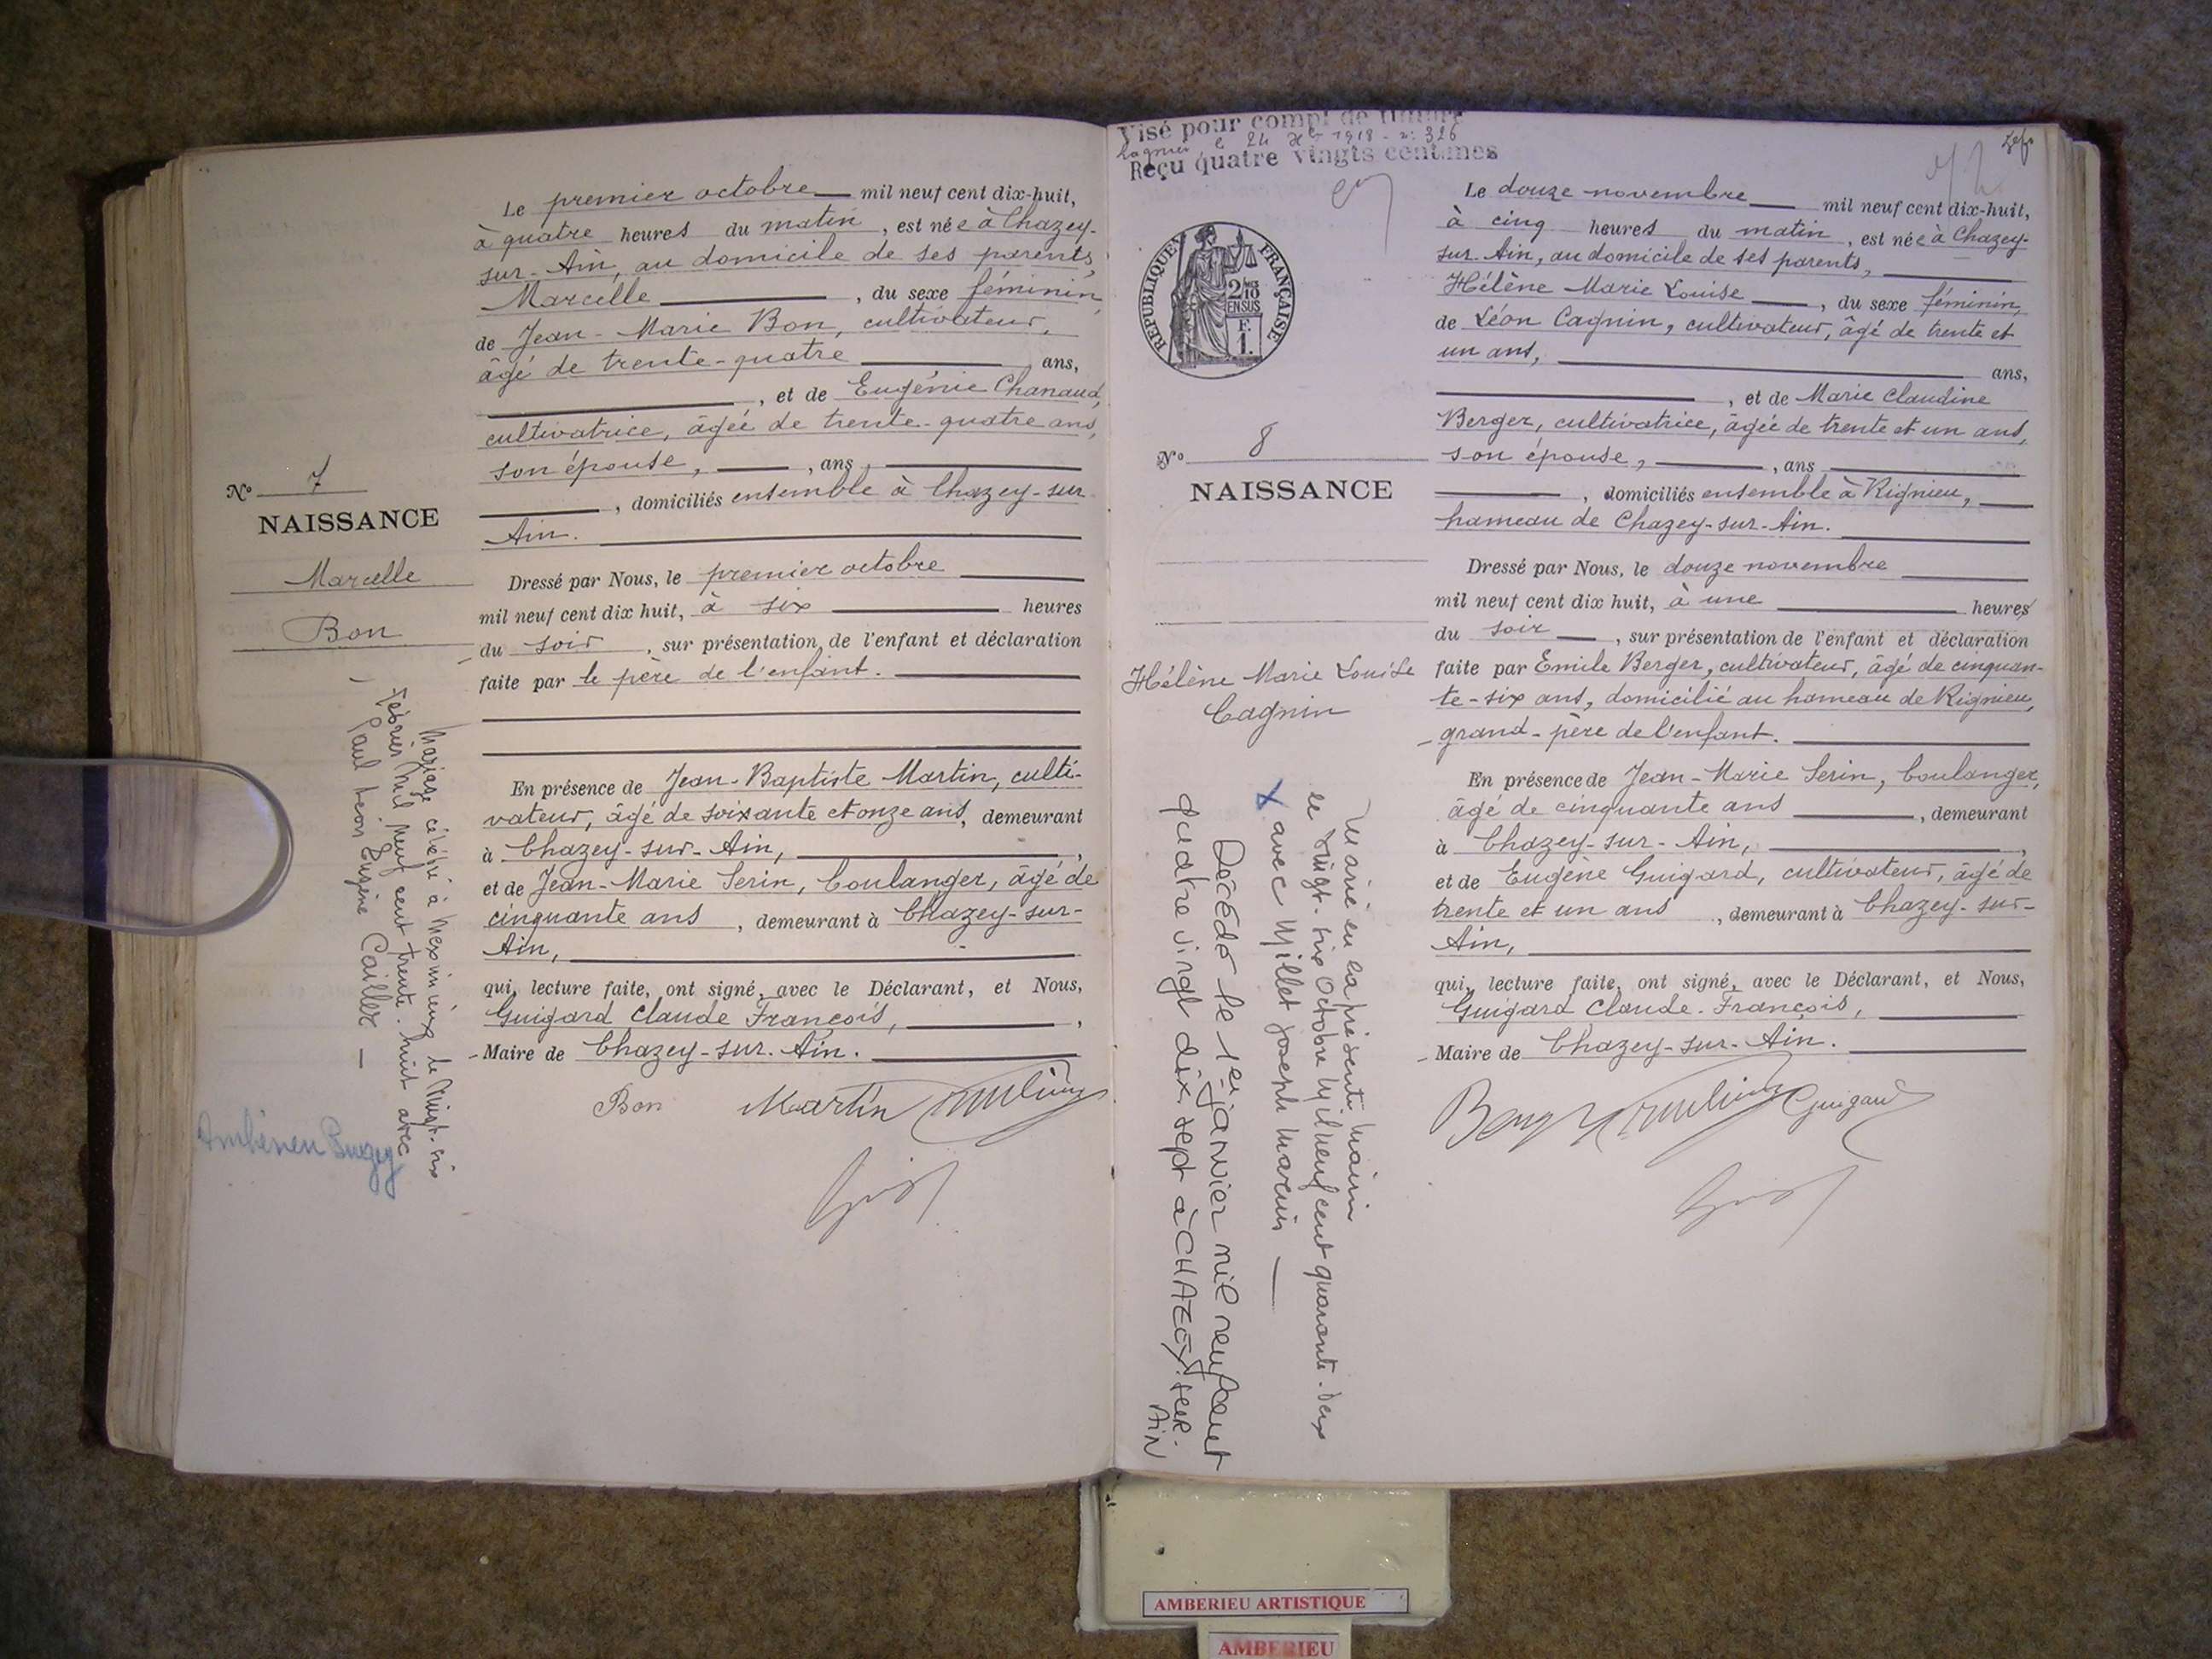 Le premier octobre mil neuf cent dix-huit,
à quatre heures du matin, est née à Chazey-
sur-Ain, au domicile de ses parents,
Marcelle, du sexe féminin,
de Jean-Marie Bon, cultivateur,
âgé de trente-quatre ans,
, et de Eugénie Chanaud,
cultivatrice, âgée de trente-quatre ans,
son épouse, , ans
, domiciliés ensemble à Chazey-sur-
Ain.
Nº 7
NAISSANCE
Marcelle
Bon
Dressé par Nous, le premier octobre
mil neuf cent dix huit, à six heures
du soir, sur présentation de l'enfant et déclaration
faite par le père de l'enfant.
En présence de Jean-Baptiste Martin, culti-
vateur, âgé de soixante et onze ans, demeurant
à Chazey-sur-Ain, ,
et de Jean-Marie Serin, boulanger, âgé de
cinquante ans, demeurant à Chazey-sur-
Ain,
qui, lecture faite, ont signé, avec le Déclarant, et Nous,
Guigard Claude François, ,
Maire de Chazey-sur-Ain.
Bon Martin
Mariage célébré à Meximieux le vingt-six
Février mil neuf cent trente-huit avec
Paul Léon Eugène Cailler
Visé pour compt de timbre
Lagnieu, le 24 Xbre 1918 - nº 326
Reçu quatre vingts centimes
RÉPUBLIQUE FRANÇAISE
2/10
EN SUS
F.
1.
Nº 8
NAISSANCE
Hélène Marie Louise
Cagnin
Marié en la présente mairie
le vingt-six Octobre Mil neuf cent quarante-deux
X avec Millet Joseph Marius
Décédé le 1er janvier mil neuf cent
quatre vingt dix sept à CHAZEY-SUR-
AIN
Le douze novembre mil neuf cent dix-huit,
à cinq heures du matin, est née à Chazey-
sur-Ain, au domicile de ses parents,
Hélène Marie Louise, du sexe féminin,
de Léon Cagnin, cultivateur, âgé de trente et
un ans, ans,
, et de Marie Claudine
Berger, cultivatrice, âgée de trente et un ans,
son épouse, , ans
, domiciliés ensemble à Rignieu,
hameau de Chazey-sur-Ain.
Dressé par Nous, le douze novembre
mil neuf cent dix huit, à une heures
du soir, sur présentation de l'enfant et déclaration
faite par Emile Berger, cultivateur, âgé de cinquan-
te-six ans, domicilié au hameau de Rignieu,
grand-père de l'enfant.
En présence de Jean-Marie Serin, boulanger,
âgé de cinquante ans, demeurant
à Chazey-sur-Ain, ,
et de Eugène Guigard, cultivateur, âgé de
trente et un ans, demeurant à Chazey-sur-
Ain,
qui, lecture faite, ont signé, avec le Déclarant, et Nous,
Guigard Claude-François,
Maire de Chazey-sur-Ain.
Guigard
AMBERIEU ARTISTIQUE
AMBERIEU